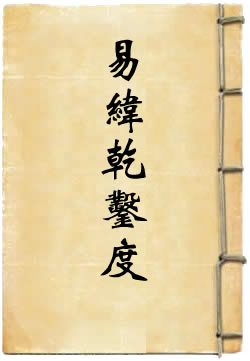 易緯乾鑿度